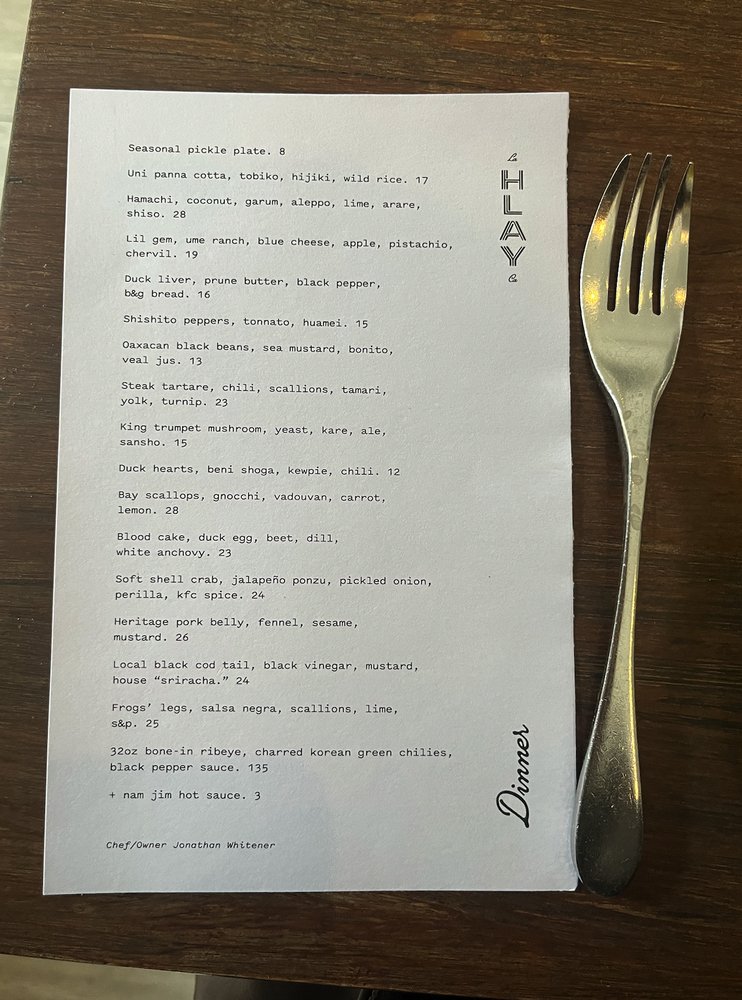 Seasonal pickle plate. 8
Uni panna cotta, tobiko, hijiki, wild rice. 17
Hamachi, coconut, garum, aleppo, lime, arare,
shiso. 28
Lil gem, ume ranch, blue cheese, apple, pistachio,
chervil. 19
Duck liver, prune butter, black pepper,
b&g bread. 16
Shishito peppers, tonnato, huamei. 15
Oaxacan black beans, sea mustard, bonito,
veal jus. 13
Steak tartare, chili, scallions, tamari,
yolk, turnip. 23
King trumpet mushroom, yeast, kare, ale,
sansho. 15
Duck hearts, beni shoga, kewpie, chili. 12
Bay scallops, gnocchi, vadouvan, carrot,
lemon. 28
Blood cake, duck egg, beet, dill,
white anchovy. 23
Soft shell crab, jalapeño ponzu, pickled onion,
perilla, kfc spice. 24
Heritage pork belly, fennel, sesame,
mustard. 26
Local black cod tail, black vinegar, mustard,
house “sriracha.” 24
Frogs’ legs, salsa negra, scallions, lime,
s&p. 25
32oz bone-in ribeye, charred korean green chilies,
black pepper sauce. 135
+ nam jim hot sauce. 3
Chef/Owner Jonathan Whitener
La
HLAY
Ca
Dinner